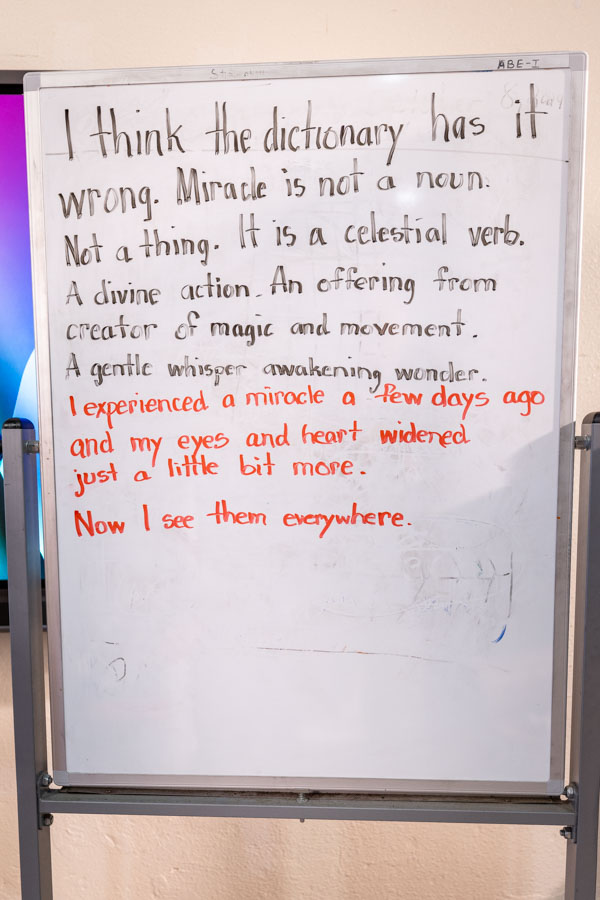 ABE-I
I think the dictionary has it
wrong. Miracle is not a noun.
Not a thing. It is a celestial verb.
A divine action. An offering from
creator of magic and movement.
A gentle whisper awakening wonder.
I experienced a miracle a few days ago
and my eyes and heart widened
just a little bit more.
Now I see them everywhere.